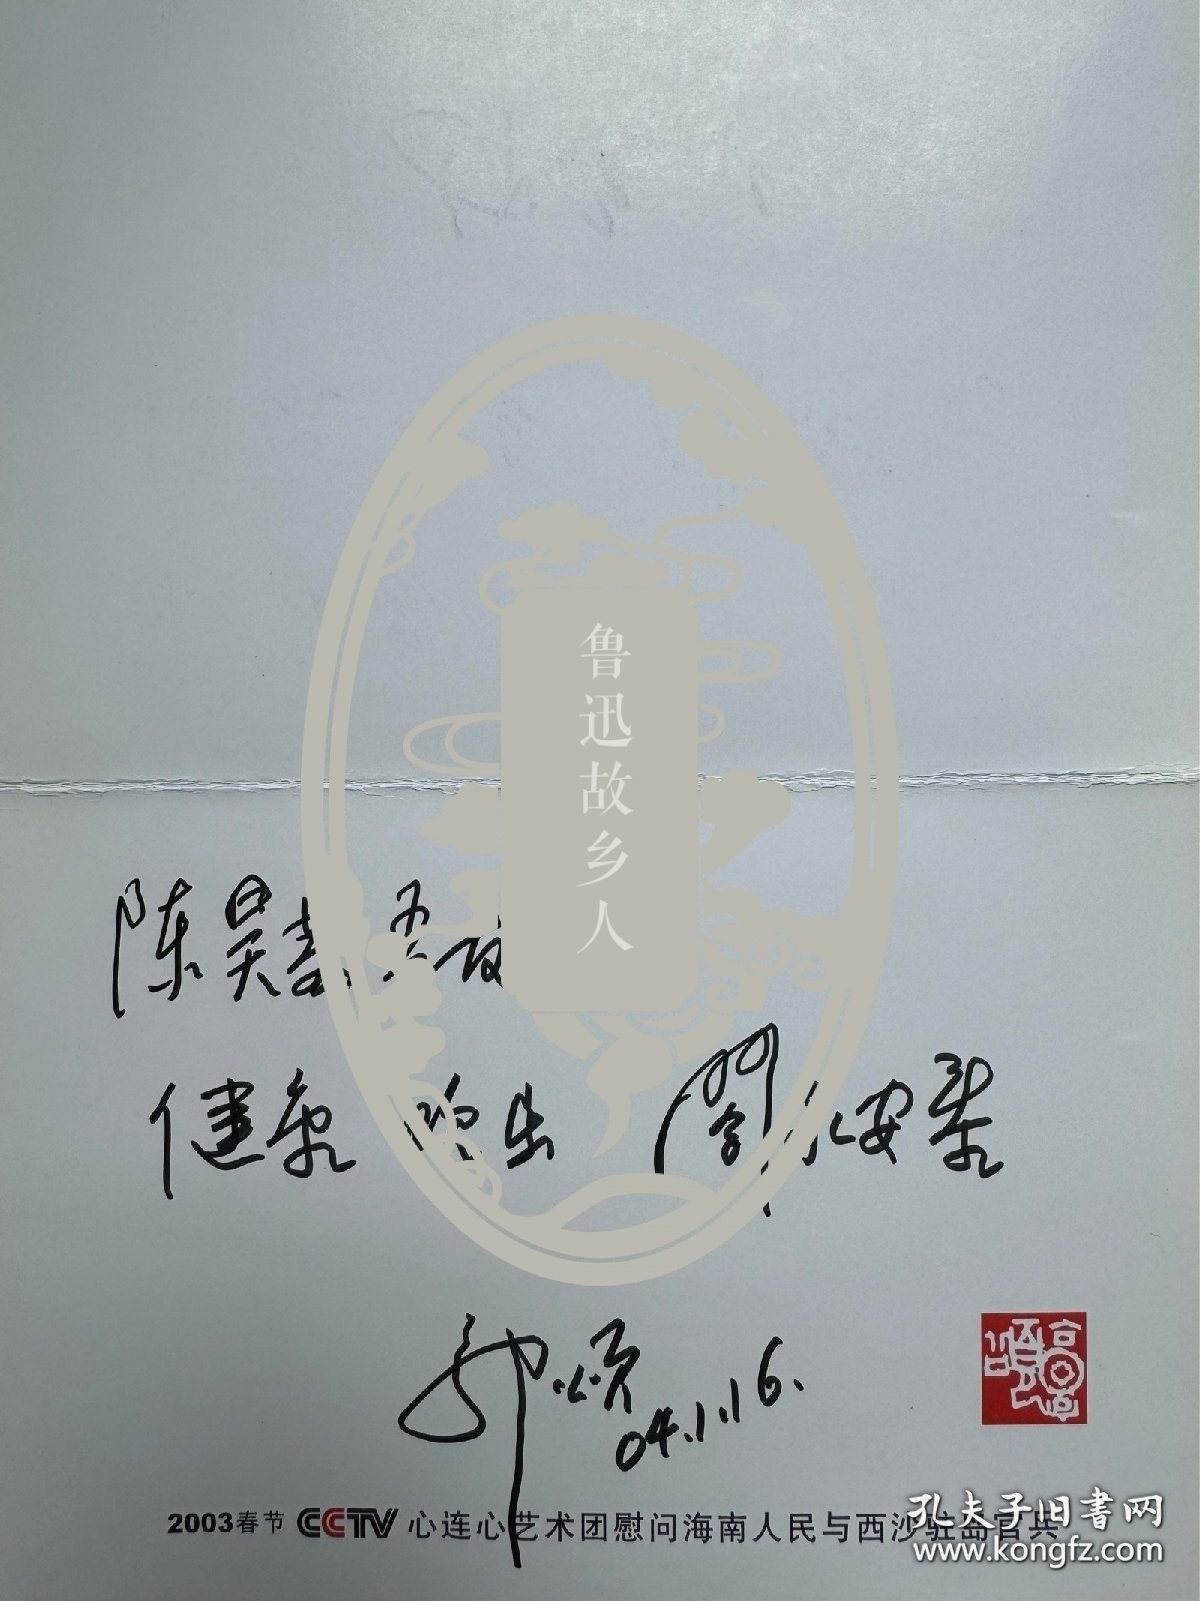 鲁迅故乡人
陈昊
健康 阖 安
郭颂
04.1.16.
2003春节 CCTV 心连心艺术团慰问海南人民与西沙驻岛官兵
孔夫子旧书网
www.kongfz.com